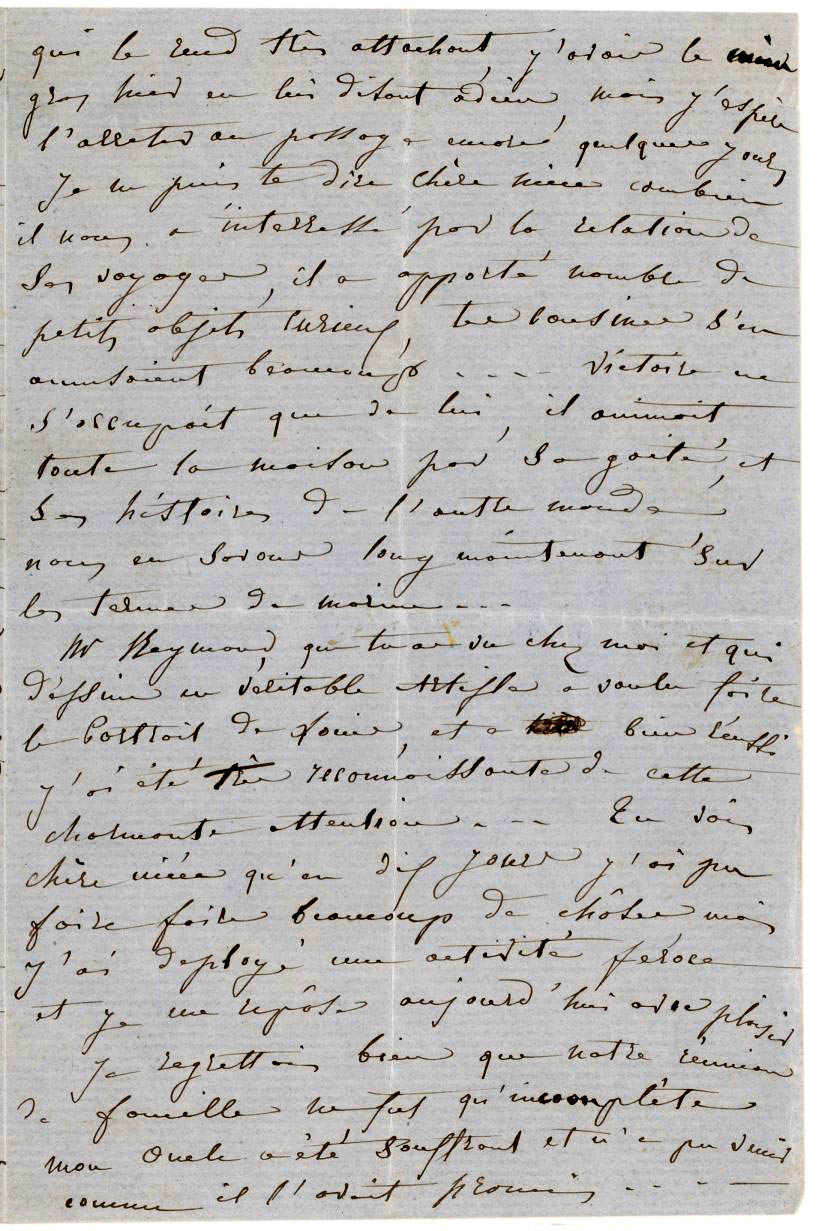 qui le rend très attachant, j'avais le cœur
gros hier en lui disant adieu, mais j'espère
l'arreter au passage encore quelques jours
Je ne puis te dire chère nièce combien
il nous a interressé par la relation de
ses voyages, il a apporté nombre de
petits objets curieux, tes cousines s'en
amusaient beaucoup ---- Victoire ne
s'occupait que de lui, il animait
toute la maison par sa gaité, et
ses histoires de l'autre monde,
nous en savons long maintenant sur
les termes de marine ---
Mr Raymond, que tu as vu chez moi et qui
dessine en véritable artiste a voulu faire
le Portrait de Louis, et a bien réussi
j'ai été très reconnaissante de cette
charmante attention --- Tu vois
chère nièce qu'en dix jours j'ai pu
faire faire beaucoup de chôses mais
j'ai deployé une activité féroce
et je me repôse aujourd'hui avec plaisir
Je regrettais bien que notre réunion
de famille ne fut qu'incomplête
mon Oncle a été souffrant et n'a pu venir
comme il l'avait promis ----